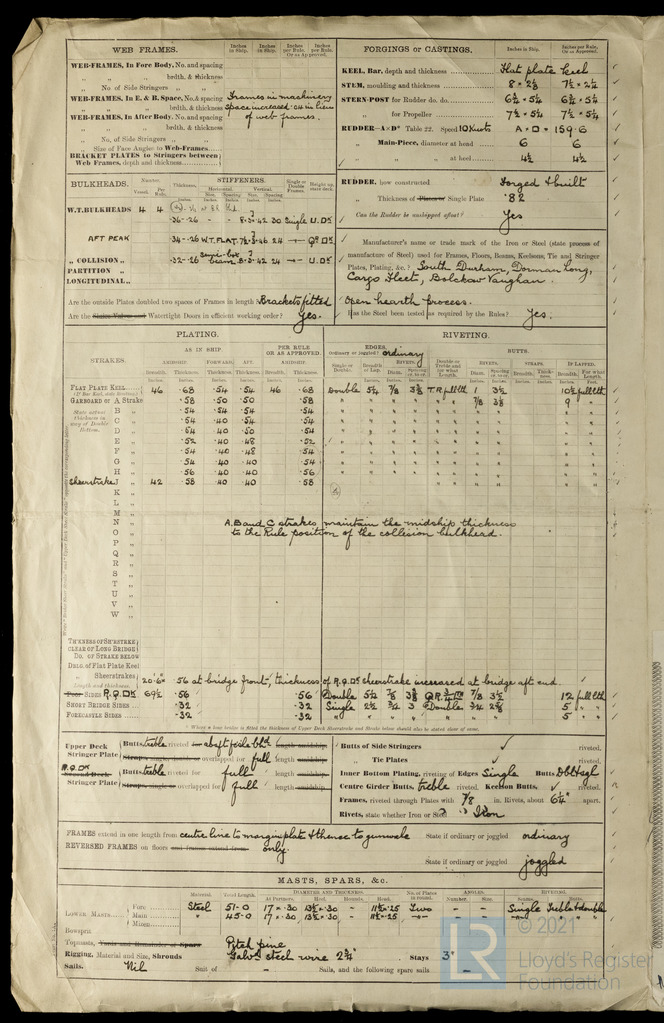 WEB FRAMES.
Inches in Ship. Inches in Ship. Inches per Rule, Or as Approved. Inches per Rule,
WEB-FRAMES, In Fore Body, No. and spacing
" " brdth. & thickness
" No. of Side Stringers "
WEB-FRAMES, In E. & B. Space, No. & spacing Frames in machinery
" " brdth. & thickness space increased .04 in lieu
WEB-FRAMES, In After Body, No. and spacing of web frames.
" " brdth. & thickness
" No. of Side Stringers "
" Size of Face Angles to Web-Frames
BRACKET PLATES to Stringers between
Web Frames, depth and thickness
FORGINGS or CASTINGS.
Inches in Ship. Inches per Rule, Or as Approved.
KEEL, Bar, depth and thickness Flat plate keel
STEM, moulding and thickness 8 × 2⅛ 7½ × 2¼
STERN-POST for Rudder do. do. 6¾ × 5¼ 6¾ × 5¼
" for Propeller 7½ × 5¼ 7½ × 5¼
RUDDER—A×D* Table 22. Speed 10 Knots A × D = 159.6
" Main-Piece, diameter at head 6 6
" " at heel 4½ 4½
RUDDER, how constructed Forged & built
" Thickness of Plates or Single Plate .82
Can the Rudder be unshipped afloat? Yes
BULKHEADS.
Number. Vessel. Per Rule. Thickness. STIFFENERS. Horizontal. Vertical. Size. Spacing Size. Spacing Single or Double Frames. Height up, state deck.
W.T. BULKHEADS 4 4
.36-.26 - - 8.3.42 30 Single U.Dk
AFT PEAK .34-.26 W.T. FLAT 24
" COLLISION " .32-.26 semi-box beam 8.3.42 24 U.Dk
PARTITION "
LONGITUDINAL "
Are the outside Plates doubled two spaces of Frames in length Brackets fitted
Are the Sluice Valves and Watertight Doors in efficient working order? Yes.
Manufacturer's name or trade mark of the Iron or Steel (state process of
manufacture of Steel) used for Frames, Floors, Beams, Keelsons, Tie and Stringer
Plates, Plating, &c.? South Durham, Dorman Long,
Cargo Fleet, Bolckow Vaughan.
Open hearth process.
Has the Steel been tested as required by the Rules? Yes.
PLATING. RIVETING.
STRAKES. AS IN SHIP. PER RULE OR AS APPROVED. EDGES. Ordinary or joggled? ordinary BUTTS.
AMIDSHIP. FORWARD. AFT. AMIDSHIP. Single or Double. Breadth of Lap. RIVETS. Double or Treble and on what Length. RIVETS. STRAPS. IF LAPPED.
Breadth. Thickness. Thickness. Thickness. Breadth. Thickness. Diam. Diam. Breadth. Thickness. Breadth. For what Length.
FLAT PLATE KEEL 46 .68 .54 .54 46 .68 Double 5¼ ⅞ 3⅜ T.R. full lth ⅞ 3½ 10½ full lth
(If Bar Keel, state Riveting.)
GARBOARD or A Strake .58 .50 .50 .58 " " " " " " ⅞ 3⅛ 9 "
State actual thickness in way of Double Bottom.
B " .54 .54 .54 .54
C " .54 .40 .54 .54
D " .64 .40 .50 .54
E " .52 .40 .48 .52
F " .54 .40 .48 .54
G " .54 .40 .40 .54
H " .56 .40 .40 .56
Sheerstrake J " 42 .58 .40 .40 .58
K "
L "
M "
N " A, B and C strakes maintain the midship thickness
O " to the Rule position of the collision bulkhead.
P "
Q "
R "
S "
T "
U "
V "
W "
THICKNESS OF SH'RSTRKE
CLEAR OF LONG BRIDGE
DO. OF STRAKE BELOW
DBLG. of Flat Plate Keel
" Sheerstrakes
Length and thickness 20'6" .56 at bridge front, thickness of R.Q.Dk sheerstrake increased at bridge aft end.
Poop SIDES R.Q.Dk 69½ .56 .56 Double 5¼ ⅞ 3⅜ ⅞ 3½ 12 full lth
SHORT BRIDGE SIDES .32 .32 Single 2½ ¾ 3 Double ¾ 2⅝ 5 " "
FORECASTLE SIDES .32 .32 " " " " " " " 5 " "
* Where a long bridge is fitted the thickness of Upper Deck Sheerstrake and Strake below should also be stated clear of same.
Upper Deck Stringer Plate Butts treble riveted abaft fo'c'sle bhd length amidship.
Straps, single or double overlapped for full length amidship.
R.Q.Dk Second Deck Stringer Plate Butts treble riveted for full length amidship.
Straps, single or double overlapped for full length amidship.
Butts of Side Stringers riveted.
" Tie Plates riveted.
Inner Bottom Plating, riveting of Edges Single Butts Dbl & sgl
Centre Girder Butts, treble riveted. Keelson Butts, riveted.
Frames, riveted through Plates with ⅞ in. Rivets, about 6¼" apart.
Rivets, state whether Iron or Steel Iron
FRAMES extend in one length from centre line to margin plate & thence to gunwale State if ordinary or joggled ordinary
REVERSED FRAMES on floors and frames extend from only.
State if ordinary or joggled joggled
MASTS, SPARS, &c.
Material. Total Length. DIAMETER AND THICKNESS. At Partners. Heel. Hounds. Head. No. of Plates in round. ANGLES. Number. Size. RIVETING. Seams. Butts.
LOWER MASTS Fore Steel 51-0 17 × .30 13½ × .30 - 11½ × .25 Two - - Single Treble & double
Main " 45-0 17 × .30 13½ × .30 - 11½ × .25 - - " "
Mizen
Bowsprit
Topmasts, Yards and Remainder of Spars Pitch pine
Rigging, Material and Size, Shrouds Galvd steel wire 2¾" Stays 3"
Sails. Nil Suit of - Sails, and the following spare sails -
© 2021
LR Lloyd's Register
Foundation